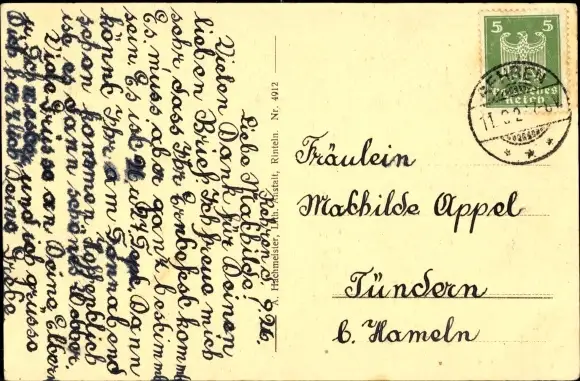 Rehren d. 9. 26.
Liebe Mathilde!
Vielen Dank für Deinen
lieben Brief. Ich freue mich
sehr dass Ihr Ernbofest kommt
Es muss aber ganz bestimmt
sein Es ist Dann
könnt Ihr am Sonnabend
schon kommen Hoffentlich
ist es dann schönes Wetter.
Viele Grüsse an Deine Eltern
u. Schwester und ich grüsse
Dich herzlich Deine
A. Hachmeister, Lith. Anstalt, Rinteln. Nr. 4912
5 5
Deutsches
Reich
REHREN
11. 9. 2
Fräulein
Mathilde Appel
Tündern
b. Hameln